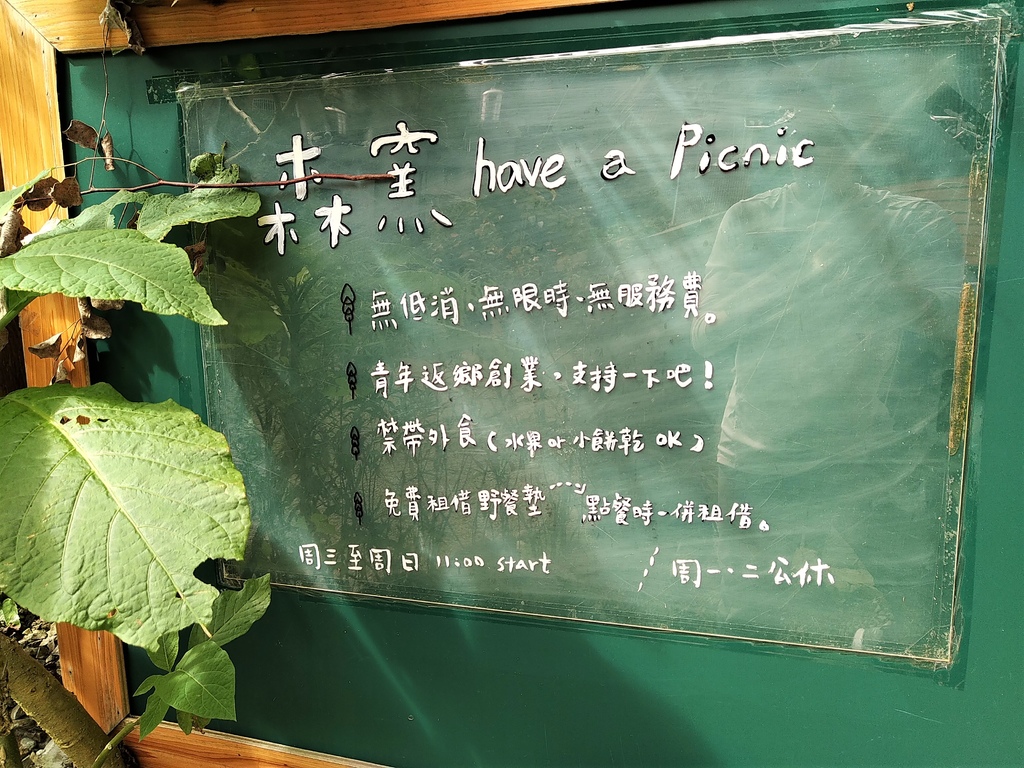 森窯 have a Picnic
無低消、無限時、無服務費。
青年返鄉創業，支持一下吧！
禁帶外食（水果or小餅乾 OK）
免費租借野餐墊 點餐時一併租借。
周三至周日 11:00 start / 周一.二公休